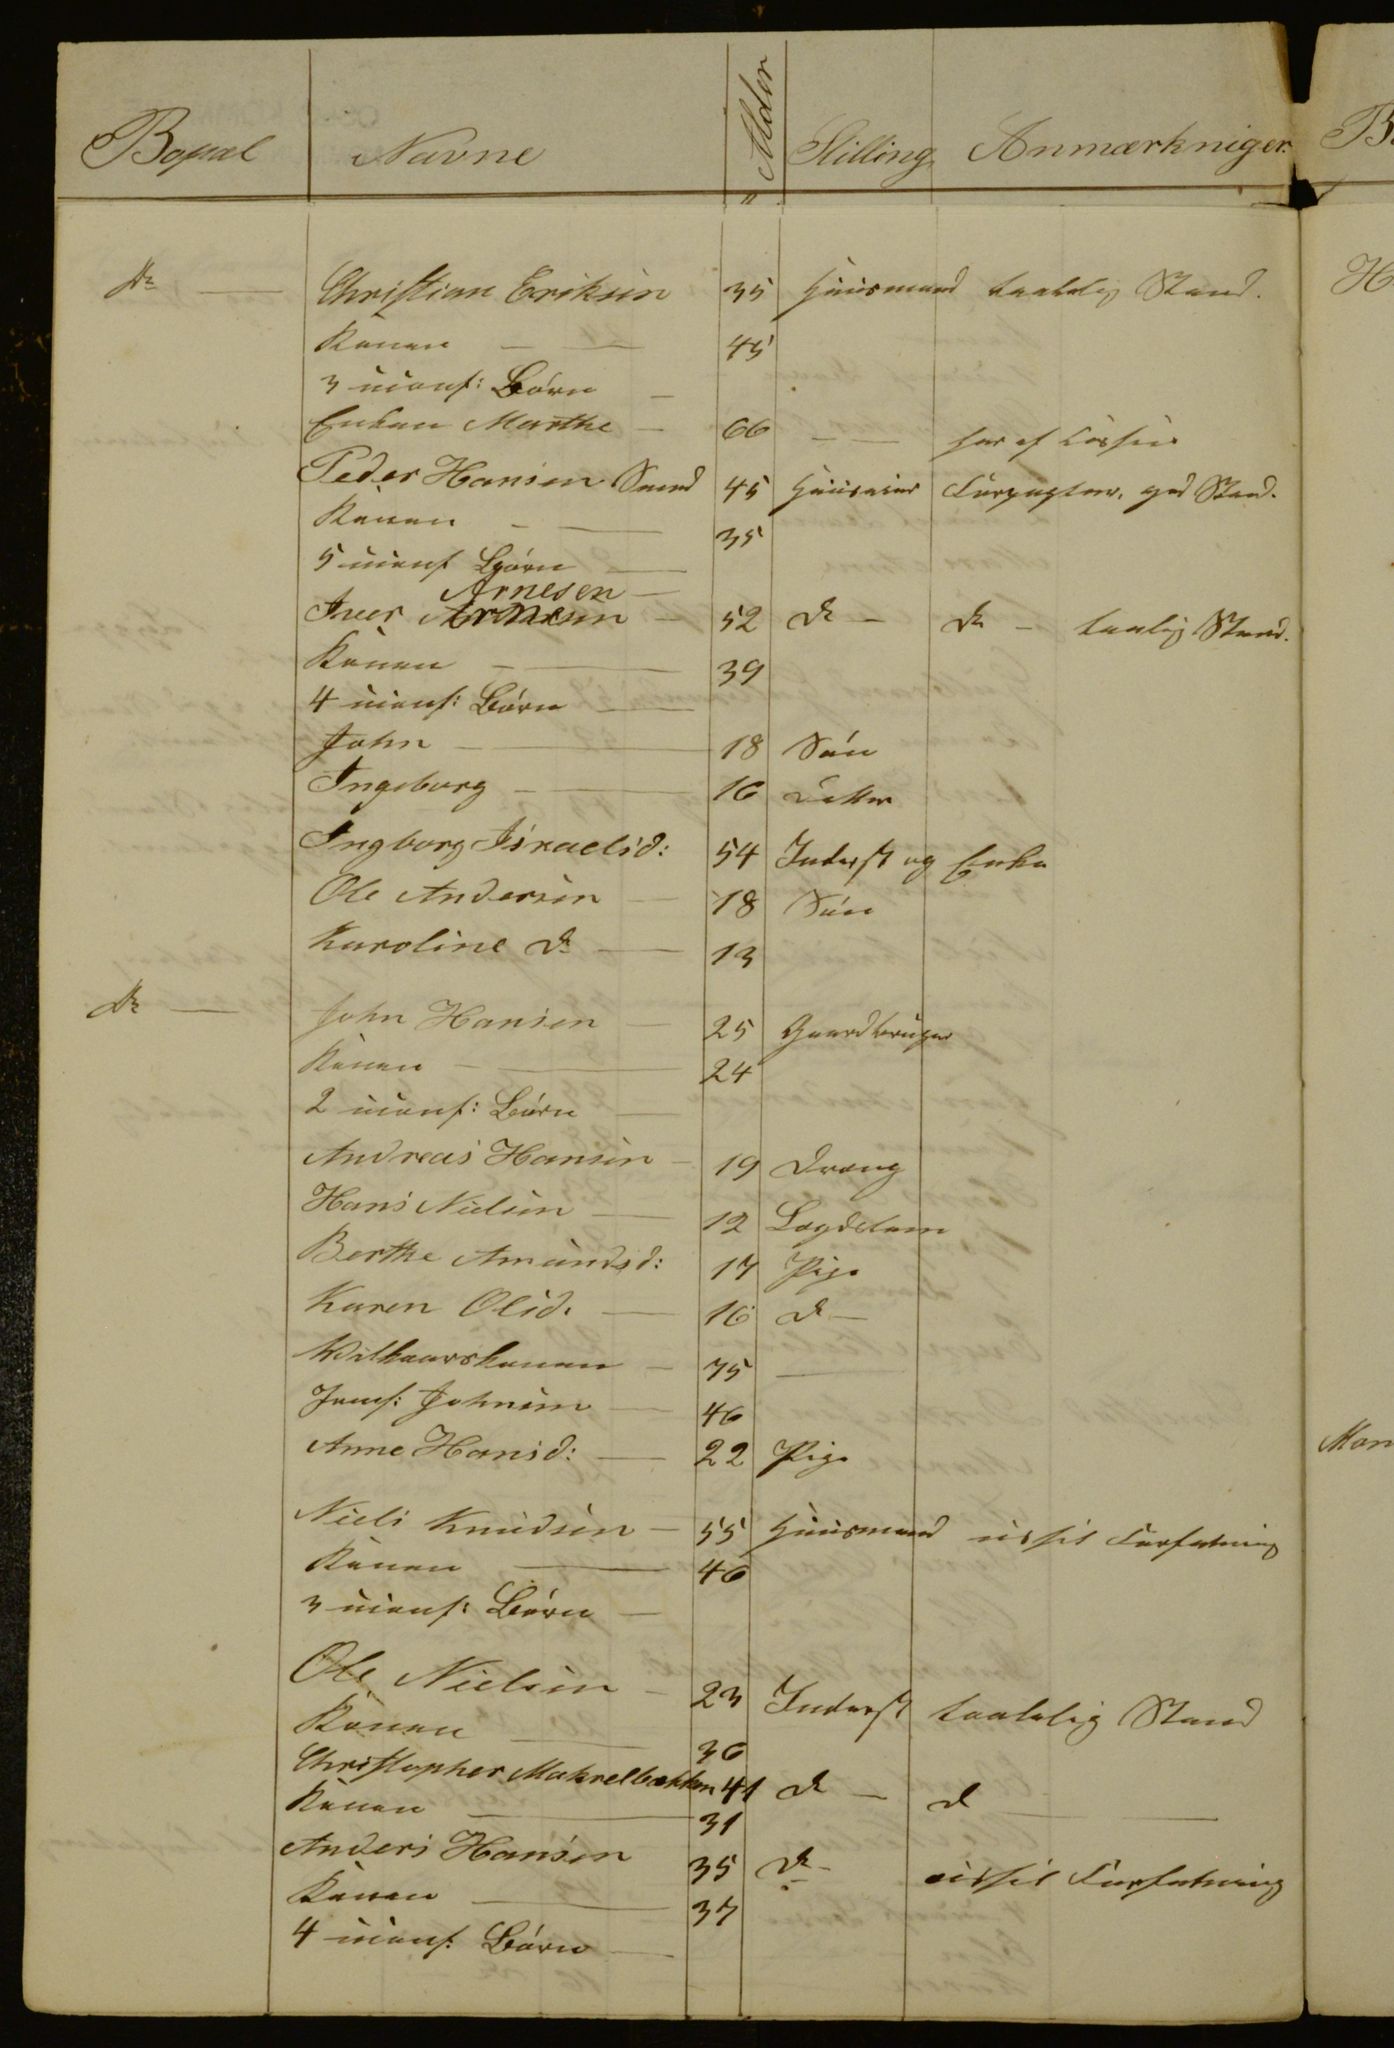 Bopæl Navne Alder Stilling Anmærkniger.
do — Christian Eriksen 35 Huusmand taalelig Stand.
Konen — — 45
3 uconf: Børn —
Enken Marthe — 66 — — har af
Peder Hansen Smed 45 Huuseier god Stand.
Konen — — 35
5 uconf Børn —
Arnesen —
Iver — 52 do — do — taalig Stand.
Konen — — 39
4 uconf: Børn —
John — — 18 Søn
Ingeborg — — 16 Datter
Ingborg Israelsd: 54 Inderst og Enke
Ole Andersen — 18 Søn
Karoline do — 13
do — John Hansen — 25 Gaardbruger
Konen — — 24
2 uconf: Børn —
Andreas Hansen — 19 Dreng
Hans Nielsen — 12 Lægdslem
Berthe Amundsd: 17 Pige
Karen Olsd. — 16 do —
Vilkaarskonen — 75 —
Johnsen — 46
Anne Hansd: — 22 Pige
Niels Knudsen — 55 Huusmand ussel Forfatning
Konen — 46
3 uconf: Børn —
Ole Nielsen — 23 Inderst taalelig Stand
Konen — 36
Christopher Makrelbækken 41 do — do —
Konen — 31
Anders Hansen 35 do — ussel Forfatning
Konen — 37
4 uconf: Børn —
B
H
Man